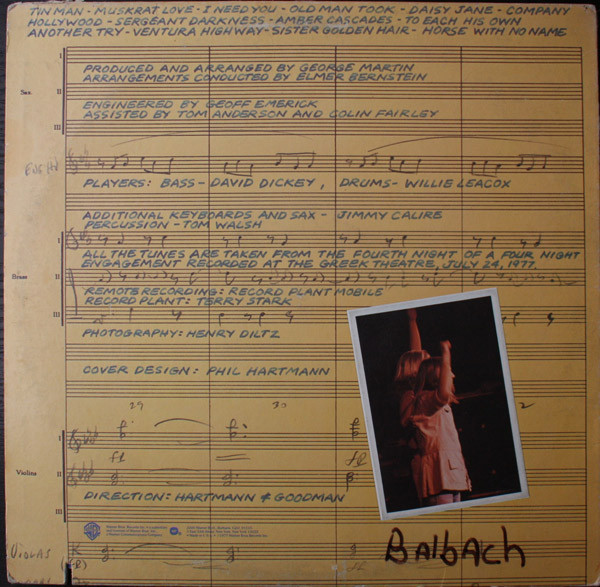 TIN MAN - MUSKRAT LOVE - I NEED YOU - OLD MAN TOOK - DAISY JANE - COMPANY
HOLLYWOOD - SERGEANT DARKNESS - AMBER CASCADES - TO EACH HIS OWN
ANOTHER TRY - VENTURA HIGHWAY - SISTER GOLDEN HAIR - HORSE WITH NO NAME
I
PRODUCED AND ARRANGED BY GEORGE MARTIN
ARRANGEMENTS CONDUCTED BY ELMER BERNSTEIN
Sax. II
ENGINEERED BY GEOFF EMERICK
ASSISTED BY TOM ANDERSON AND COLIN FAIRLEY
III
PLAYERS: BASS - DAVID DICKEY, DRUMS - WILLIE LEACOX
ADDITIONAL KEYBOARDS AND SAX - JIMMY CALIRE
PERCUSSION - TOM WALSH
I
ALL THE TUNES ARE TAKEN FROM THE FOURTH NIGHT OF A FOUR NIGHT
ENGAGEMENT RECORDED AT THE GREEK THEATRE, JULY 24, 1977.
Brass II
REMOTE RECORDING: RECORD PLANT MOBILE
RECORD PLANT: TERRY STARK
III
PHOTOGRAPHY: HENRY DILTZ
COVER DESIGN: PHIL HARTMANN
29 30 2
I
Violins II
DIRECTION: HARTMANN & GOODMAN
III
Balbach
VIOLAS